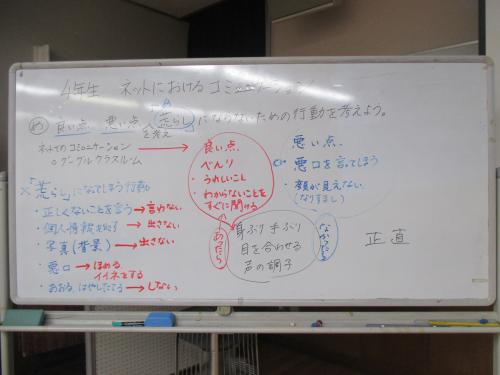 4年生 ネットにおけるコミュニケーション
め 良い点 悪い点を考え「荒らし」にならないための行動を考えよう。
ネットでのコミュニケーション
○グーグルクラスルーム
良い点
べんり
・うれしいこと
・わからないことを
すぐに聞ける
悪い点
悪口を言ってしまう
・顔が見えない
(なりすまし)
※「荒らし」になってしまう行動
・正しくないことを言う→言わない
・個人情報を出す→出さない
・写真(背景)→出さない
・悪口→ほめる
イイネとする
・あおる、はやしたてる→しない
あったら
身ぶり手ぶり
目を合わせる
声の調子
なかったら
正直